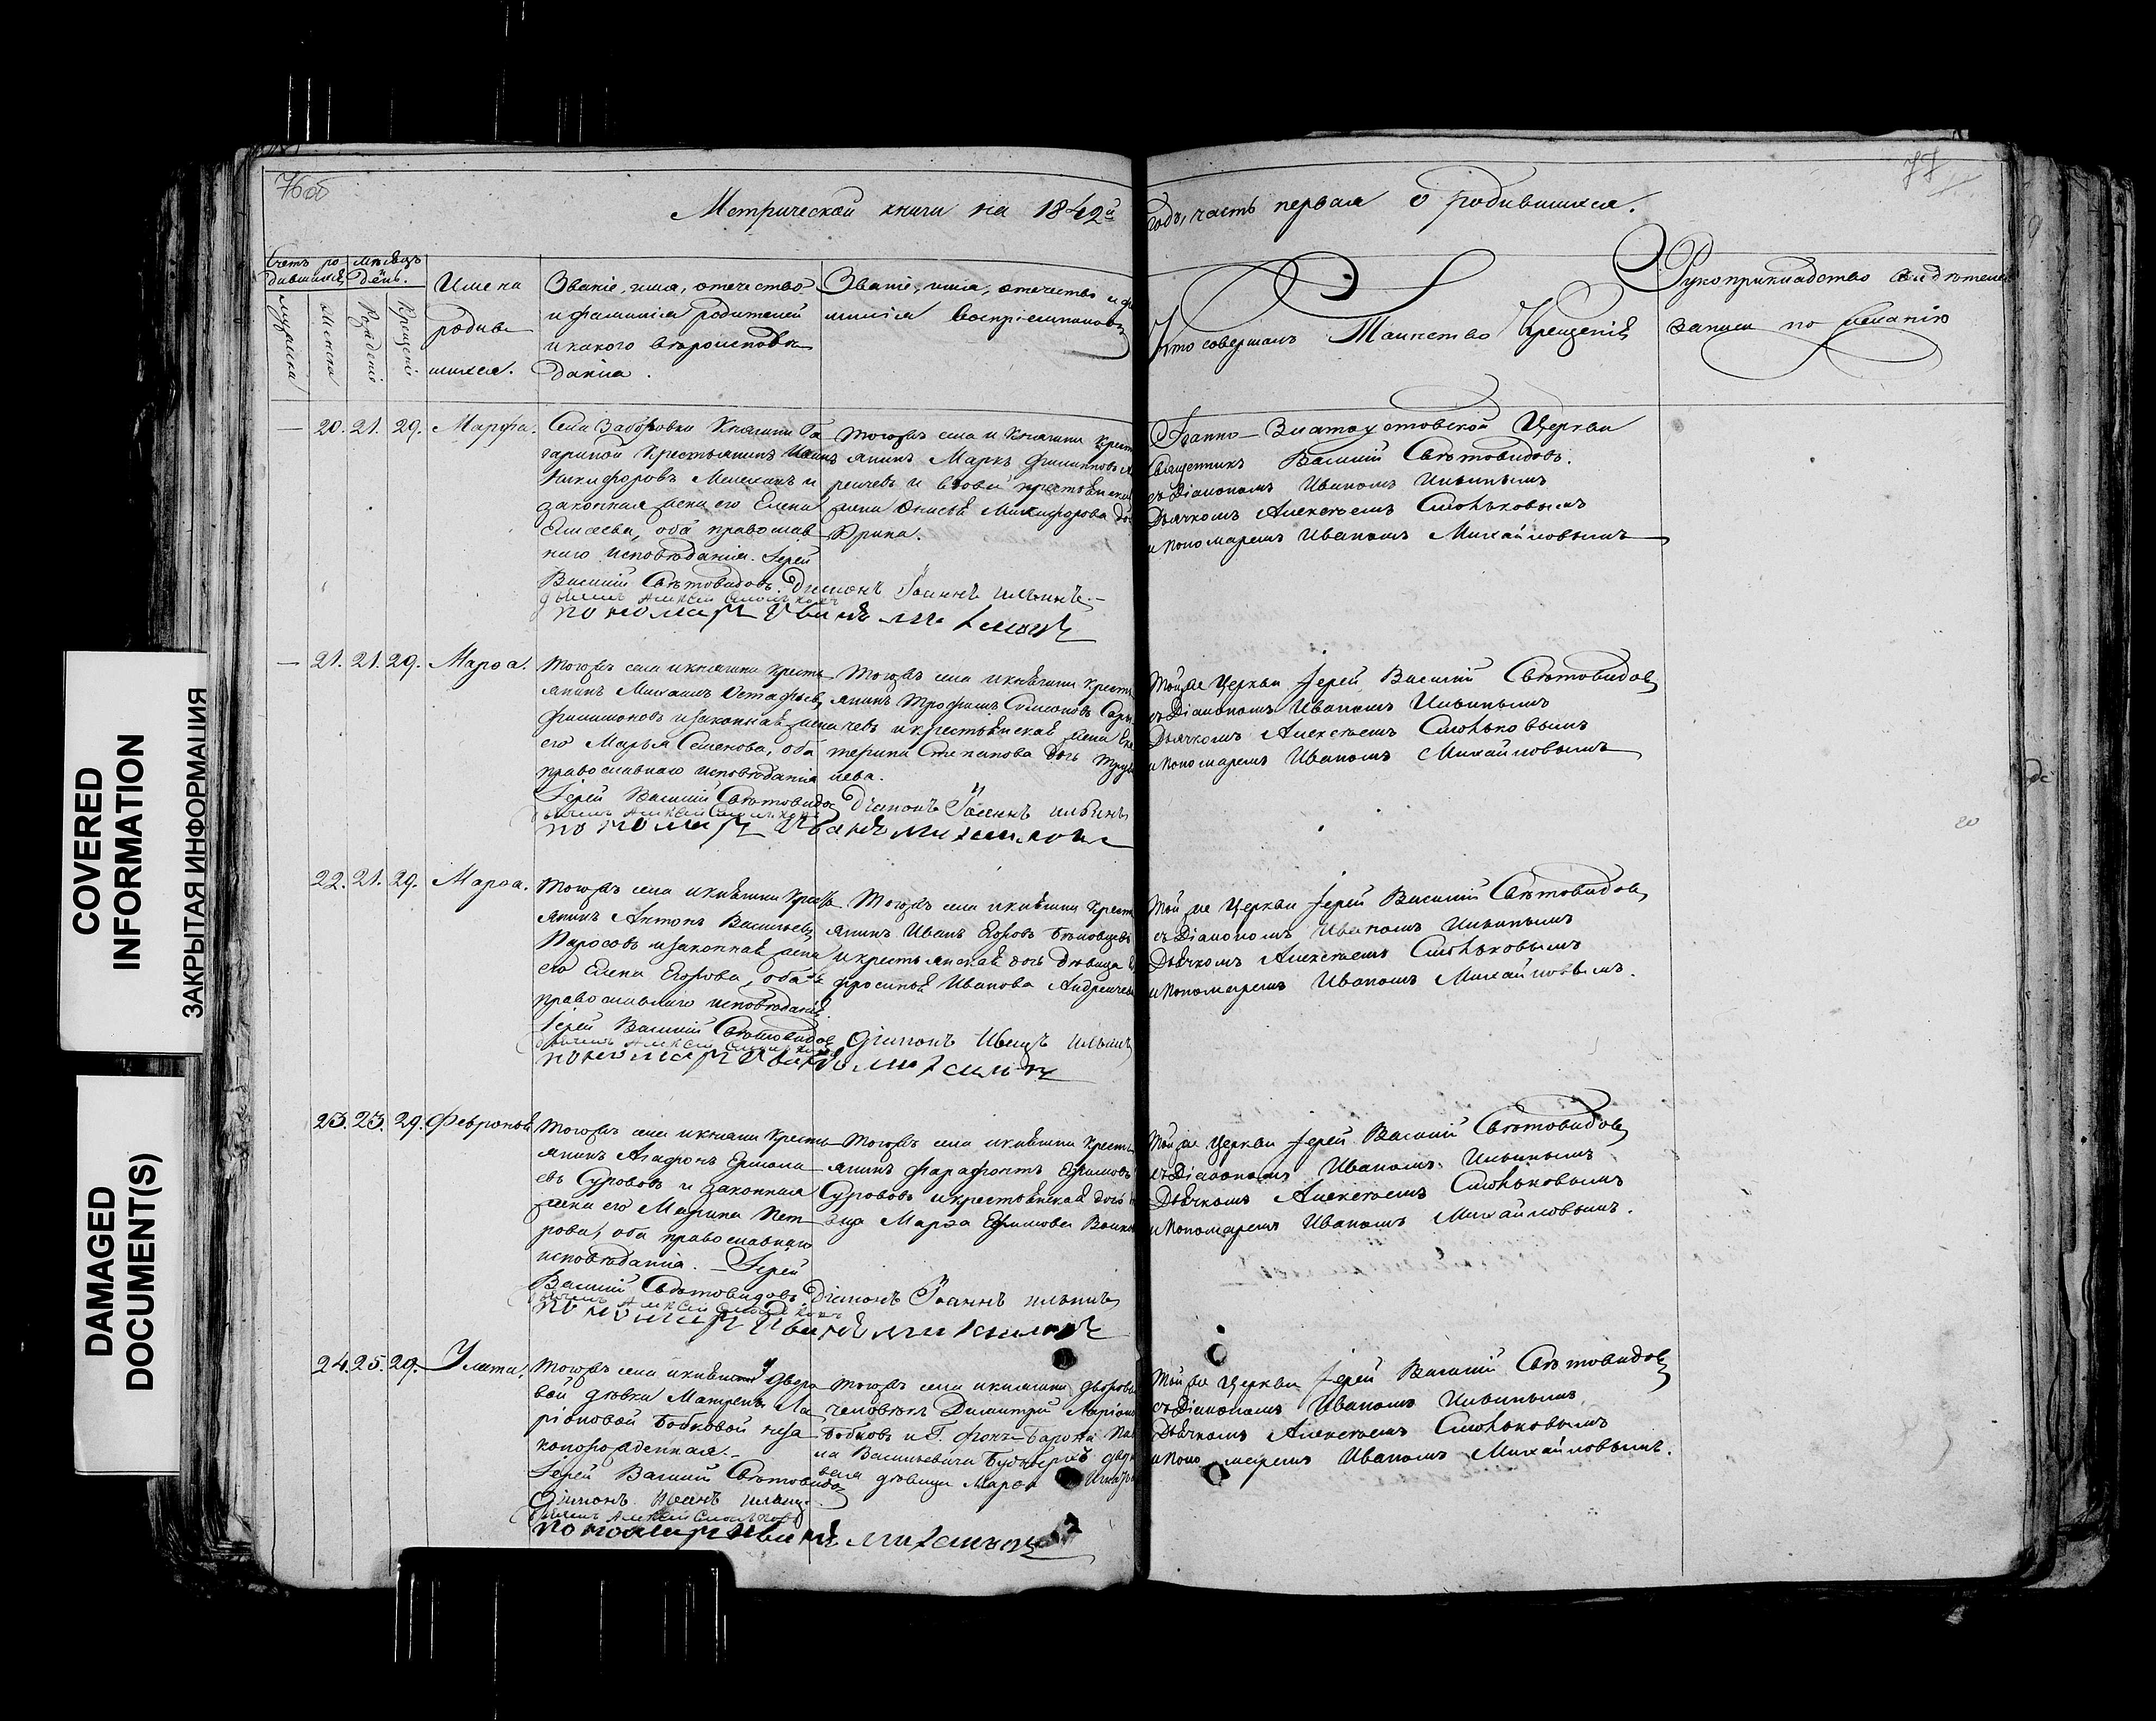 76об
77
Метрической книги на 1842й годъ, часть первая о родившихся.
Счетъ ро-
дившихся
мѣсяцъ
день.
мужеска
женска
Рожденія
Крещенія
Имена
родив-
шихся.
Званіе, имя, отечество
и фамилія родителей
и какого вѣроисповѣ-
данія.
Званіе, имя, отечество и фа-
милія Воспріемниковъ
Кто совершалъ Таинство Крещенія
Рукоприкладство свидѣтелей
записи по желанію
— 20. 21. 29. Марфа.
Села Заборовки Княгини Га-
гариной Крестьянинъ Иванъ
Никифоровъ и
законная жена его Елена
обѣ православ-
наго исповѣданія. Іерей
Василій Свѣтовидовъ. Діаконъ Іоаннъ Ильинъ.
дьячекъ Алексѣй Смольковъ
пономарь Иванъ Михайловъ
Тогожъ села и Княгини Крест
янинъ Маркъ Филипповъ
и вдовая крестьянская
жена Никифорова
Іоанно-Златоустовской Церкви
Священникъ Василій Свѣтовидовъ.
съ Діакономъ Иваномъ Ильинымъ
Дьячкомъ Алексѣемъ Смольковымъ
и Пономаремъ Иваномъ Михайловымъ
— 21. 21. 29. Марѳа.
Тогожъ села и княгини Кресть-
янинъ Михаилъ Остафьевъ
Филимоновъ и законная жена
его Марья Семенова, оба
православнаго исповѣданія
Іерей Василій Свѣтовидовъ Діаконъ Іоаннъ Ильинъ
дьячекъ Алексѣй Смольковъ
пономарь Иванъ Михайловъ
Тогожъ села и княгини Кресть
янинъ Трофимъ
и крестьянская жена Ека
терина Степанова
Той же Церкви Іерей Василій Свѣтовидовъ
съ Діакономъ Иваномъ Ильинымъ
Дьячкомъ Алексѣемъ Смольковымъ
и Пономаремъ Иваномъ Михайловымъ
22. 21. 29. Марѳа.
Тогожъ села и княгини Кресть-
янинъ Антонъ Васильевъ
и законная жена
его Елена Егорова, оба
православнаго исповѣданія
Іерей Василій Свѣтовидовъ Діаконъ Иванъ Ильинъ
дьячекъ Алексѣй Смольковъ
пономарь Иванъ Михайловъ
Тогожъ села и княгини Кресть
янинъ Иванъ Егоровъ
и крестьянская дочь дѣвица
фросинья Иванова
Той же Церкви Іерей Василій Свѣтовидовъ
съ Діакономъ Иваномъ Ильинымъ
Дьячкомъ Алексѣемъ Смольковымъ
и Пономаремъ Иваномъ Михайловымъ.
23. 23. 29. Февронья
Тогожъ села и княгини Кресть-
янинъ Агафонъ Ермола-
евъ Сурововъ и законная
жена его Марина Пет-
рова, оба православнаго
исповѣданія. — Іерей
Василій Свѣтовидовъ Діаконъ Іоаннъ Ильинъ
дьячекъ Алексѣй Смольковъ
пономарь Иванъ Михайловъ
Тогожъ села и княгини Кресть
янинъ Фарафонтъ Ефимовъ
Сурововъ и крестьянская дочь
Марѳа Ефимова
Той же Церкви Іерей Василій Свѣтовидовъ
съ Діакономъ Иваномъ Ильинымъ
Дьячкомъ Алексѣемъ Смольковымъ
и Пономаремъ Иваномъ Михайловымъ.
24. 25. 29. Улита.
Тогожъ села и княгини дворо-
вой дѣвки Матрены Ла-
ріоновой Бобковой неза-
конорожденная.
Іерей Василій Свѣтовидовъ
Діаконъ Иванъ Ильинъ
дьячекъ Алексѣй Смольковъ
пономарь Иванъ Михайловъ
Тогожъ села и княгини дворовы
человѣкъ Димитрій Ларіон
Бобковъ и Г. фонъ-Барона Пав
ла Васильевича двор
вая дѣвица Марѳа
Той же Церкви Іерей Василій Свѣтовидовъ
съ Діакономъ Иваномъ Ильинымъ
Дьячкомъ Алексѣемъ Смольковымъ
и Пономаремъ Иваномъ Михайловымъ.
COVERED
INFORMATION
ЗАКРЫТАЯ ИНФОРМАЦИЯ
DAMAGED
DOCUMENT(S)